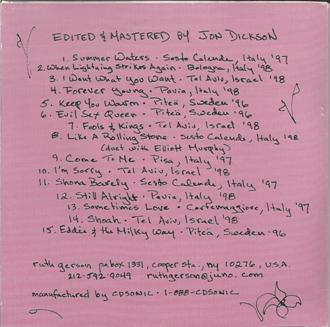 EDITED & MASTERED BY JON DICKSON
1. Summer Waters · Sesto Calende, Italy '97
2. When Lightning Strikes Again · Bologna, Italy '98
3. I Want What You Want · Tel Aviv, Israel '98
4. Forever Young · Pavia, Italy '98
5. Keep You Warm · Piteå, Sweden '96
6. Evil Sex Queen · Piteå, Sweden '96
7. Fools & Kings · Tel Aviv, Israel '98
8. Like A Rolling Stone · Sesto Calende, Italy '98
(duet with Elliott Murphy)
9. Come To Me · Pisa, Italy '97
10. I'm Sorry · Tel Aviv, Israel '98
11. Shona Barely · Sesto Calende, Italy '97
12. Still Alright · Pavia, Italy '98
13. Sometimes Love · Italy '97
14. Shoah · Tel Aviv, Israel '98
15. Eddie & the Milky Way · Piteå, Sweden '96
ruth gerson po box 1331, cooper sta., ny 10276, U.S.A.
212-592-9049 ruthgerson@juno.com
manufactured by CDSONIC · 1-888-CDSONIC